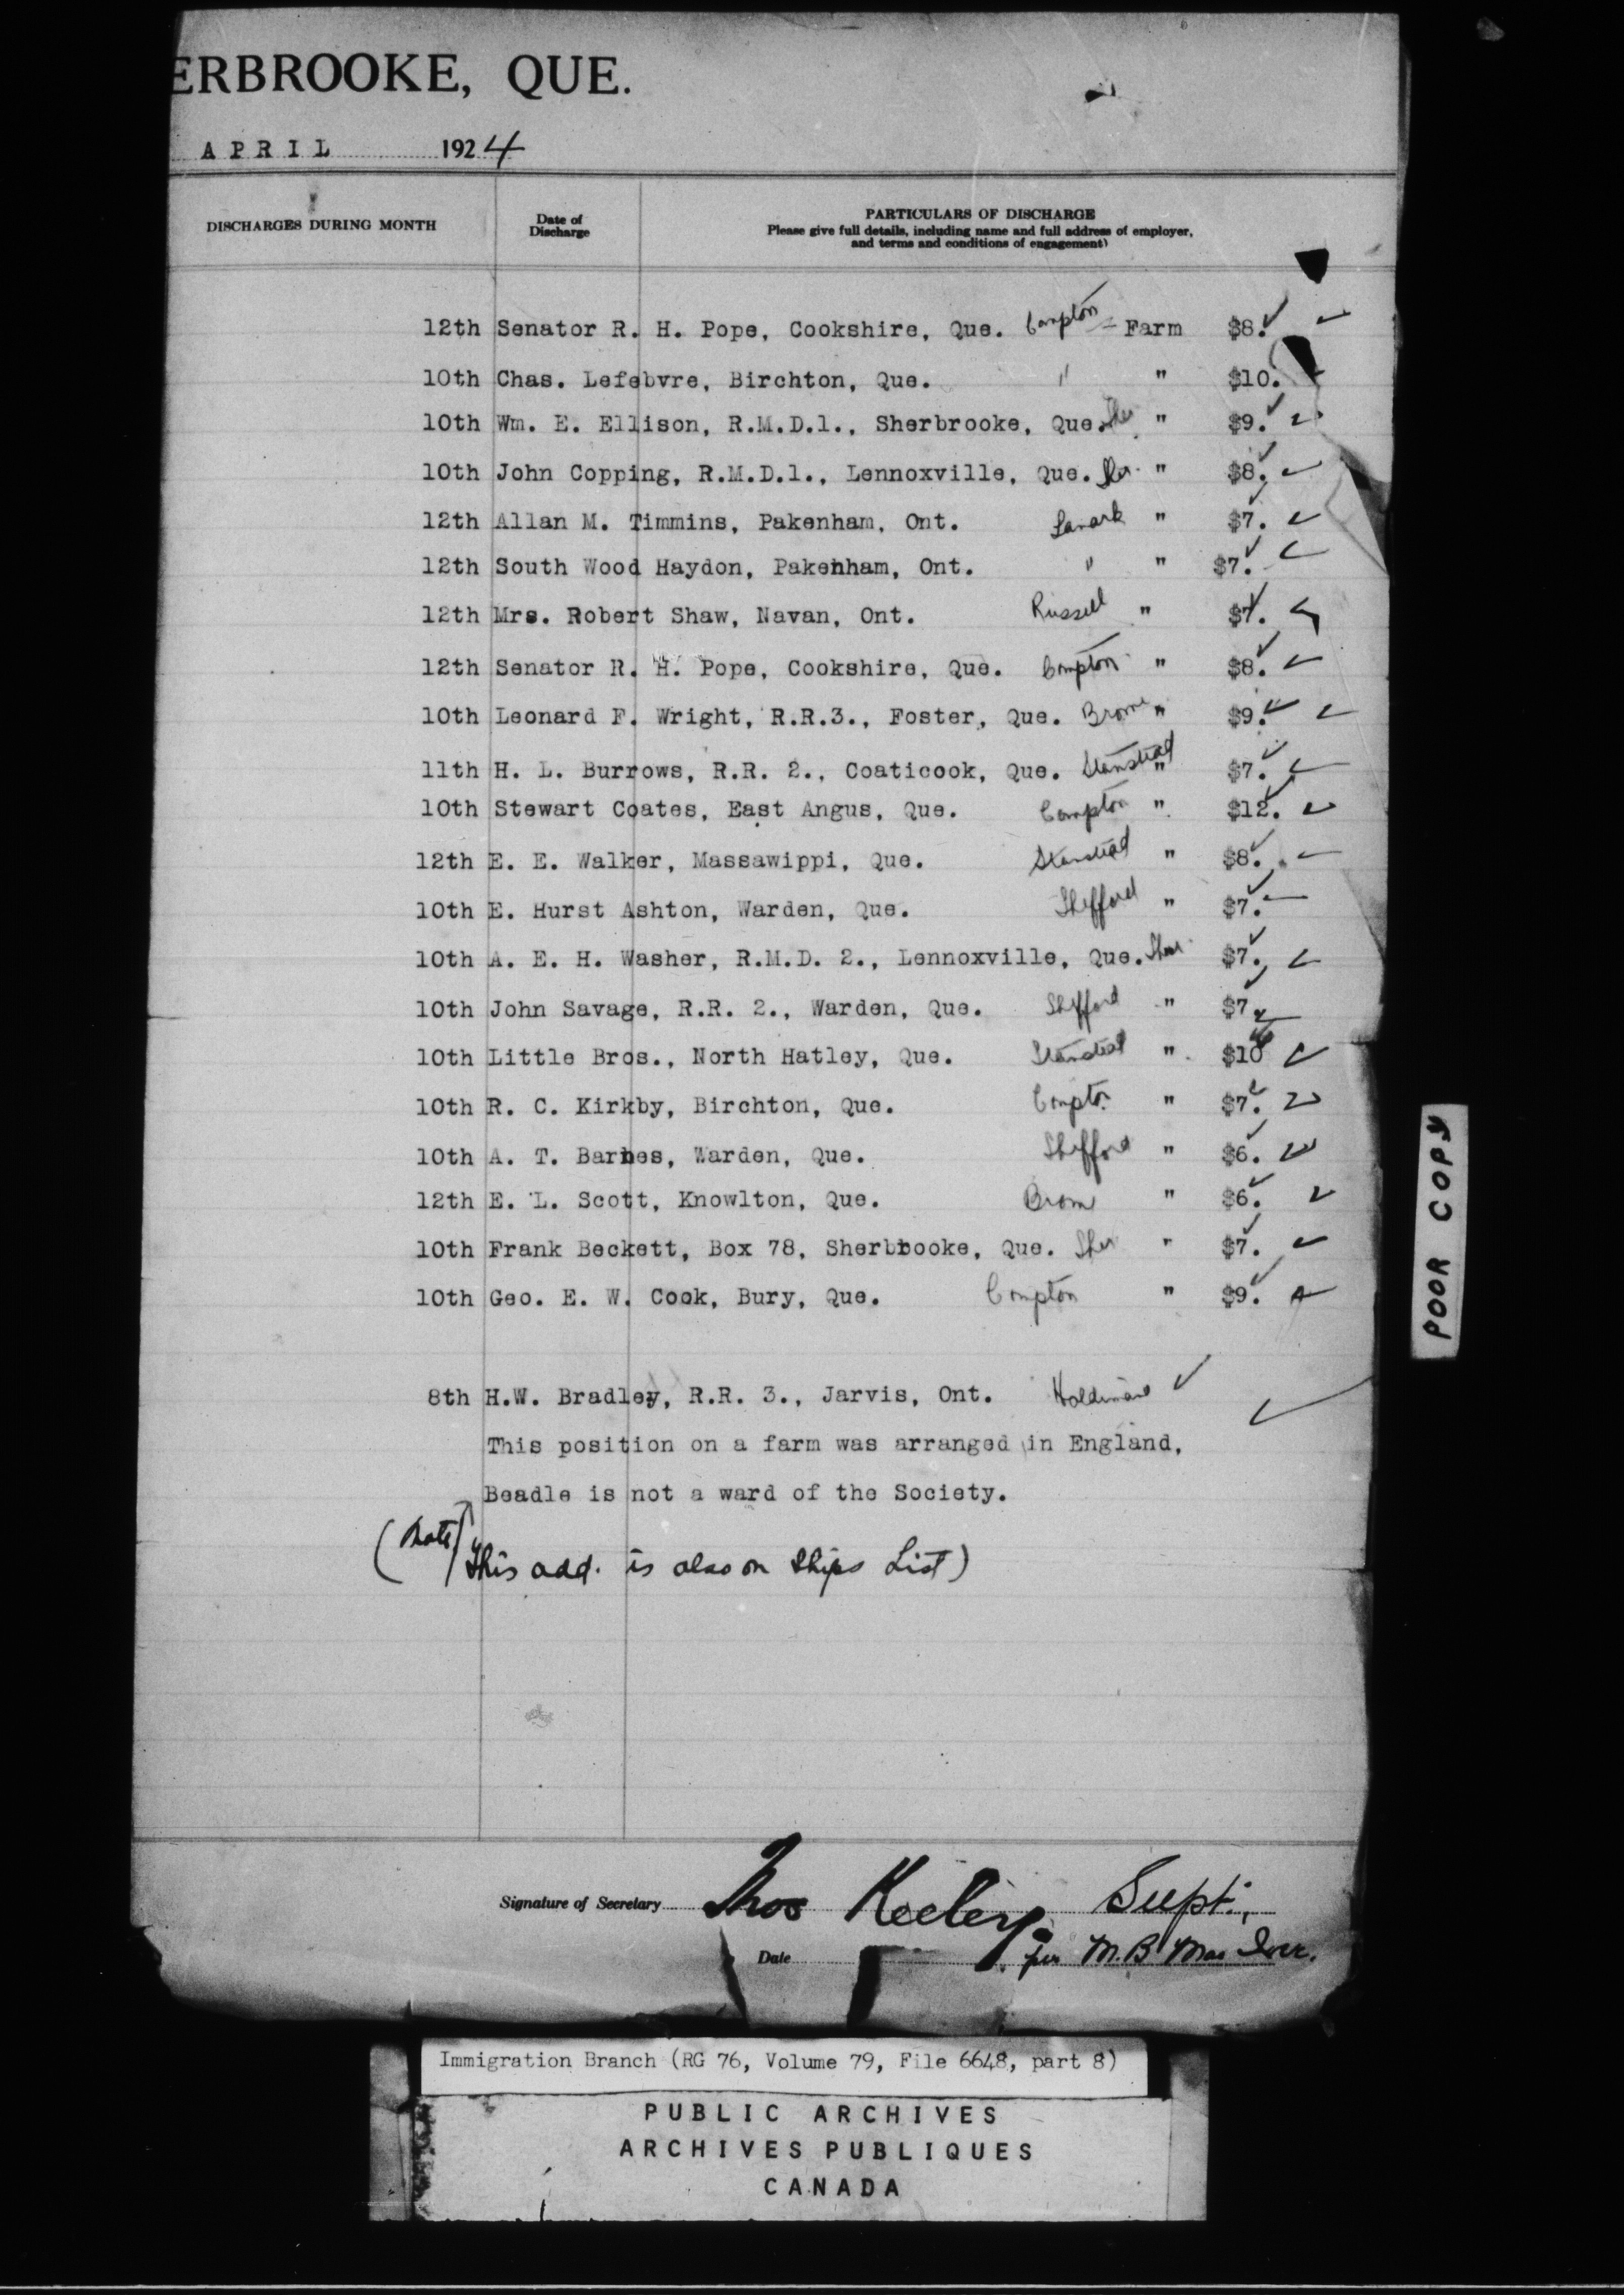 ERBROOKE, QUE.
APRIL 1924
DISCHARGES DURING MONTH Date of Discharge PARTICULARS OF DISCHARGE
Please give full details, including name and full address of employer,
and terms and conditions of engagement)
12th Senator R. H. Pope, Cookshire, Que. Compton - Farm $8.
10th Chas. Lefebvre, Birchton, Que. " " $10.
10th Wm. E. Ellison, R.M.D.1., Sherbrooke, Que. Sher " $9.
10th John Copping, R.M.D.1., Lennoxville, Que. Sher. " $8.
12th Allan M. Timmins, Pakenham, Ont. Lanark " $7.
12th South Wood Haydon, Pakenham, Ont. " " $7.
12th Mrs. Robert Shaw, Navan, Ont. Russell " $7.
12th Senator R. H. Pope, Cookshire, Que. Compton " $8.
10th Leonard F. Wright, R.R.3., Foster, Que. Brome " $9.
11th H. L. Burrows, R.R. 2., Coaticook, Que. Stanstead " $7.
10th Stewart Coates, East Angus, Que. Compton " $12.
12th E. E. Walker, Massawippi, Que. Stanstead " $8.
10th E. Hurst Ashton, Warden, Que. Shefford " $7.
10th A. E. H. Washer, R.M.D. 2., Lennoxville, Que. Sher. $7.
10th John Savage, R.R. 2., Warden, Que. Shefford " $7
10th Little Bros., North Hatley, Que. Stanstead " $10
10th R. C. Kirkby, Birchton, Que. Compton " $7.
10th A. T. Barnes, Warden, Que. Shefford " $6.
12th E. L. Scott, Knowlton, Que. Brome " $6.
10th Frank Beckett, Box 78, Sherbrooke, Que. Sher " $7.
10th Geo. E. W. Cook, Bury, Que. Compton " $9.
8th H.W. Bradley, R.R. 3., Jarvis, Ont. Haldimand
This position on a farm was arranged in England,
Beadle is not a ward of the Society.
(Note this add. is also on Ships List)
Signature of Secretary Thos Keeley. Supt.,
Date per M.B. MacIver.
POOR COPY
Immigration Branch (RG 76, Volume 79, File 6648, part 8)
PUBLIC ARCHIVES
ARCHIVES PUBLIQUES
CANADA